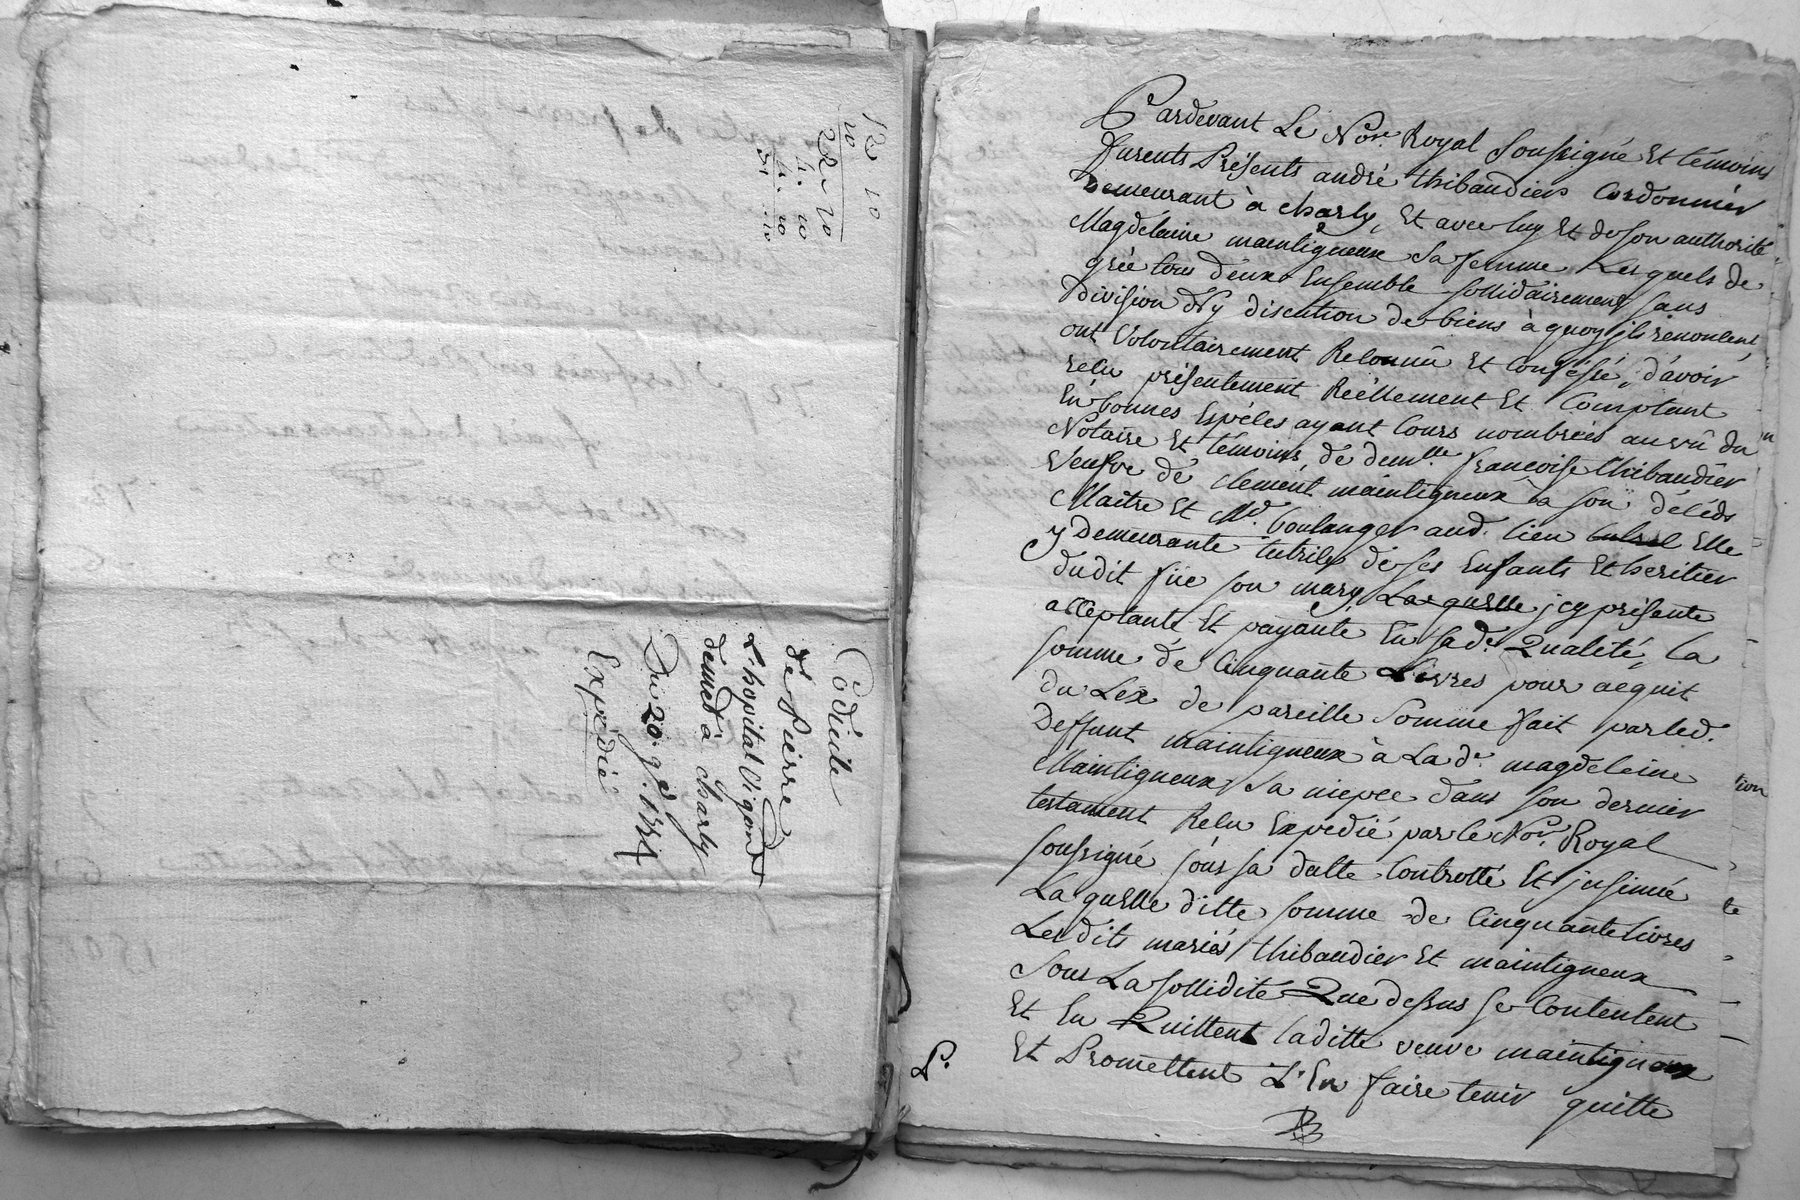 12 10
10
22 - 10
Codicile
de Pierre
L'hopital Vigand
demt à Charly
Du 20. 9.
Expédié
Pardevant Le Nore. Royal soussigné Et témoins
furents Présents andré thibaudier Cordonnier
Demeurant à charly, Et avec luy Et de son authorité
Magdelaine maintigneux sa femme Lesquels de
grée tous deux Ensemble sollidairement sans
Division Ny discution de biens à quoy ils renoncent,
ont Volontairement Reconnû Et Confessé, d'avoir
recu présentement Réèllement Et Comptant
En bonnes Espéces ayant Cours nombrées au vû du
Notaire Et témoins, de demlle. françoise thibaudier
Veufve de clement maintigneux a son décéds
Maitre Et Md. boulanger aud. lieu Elle
y Demeurante tutrice de ses Enfants Et heritier
dudit füe son mary, Laquelle jcy présente
acceptante Et payante En sade. Qualité, la
somme de Cinquante Livres pour acquit
du Lex de pareille Somme fait par led.
Deffunt maintigneux à La de. magdeleine
Maintigneux sa niepce dans son dernier
testament Recu Expedié par le Nore. Royal
soussigné sous sa datte Controllé Et jnsinué
Laquelle ditte somme de Cinquante livres
Lesdits mariés thibaudier Et maintigneux
Sous La sollidité Que dessus se Contentent
Et En Quittent laditte veuve maintigneux
Et Promettent L'En faire tenir quitte
P.
tion
te